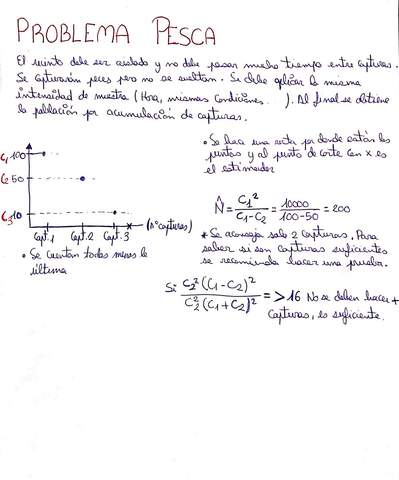 PROBLEMA PESCA
El recinto debe ser aislado y no debe pasar mucho tiempo entre capturas.
Se capturarán peces pero no se sueltan. Se debe aplicar la misma
intensidad de muestra (Hora, mismas condiciones...). Al final se obtiene
la población por acumulación de capturas.
• Se hace una recta por donde están los
puntos y al punto de corte con x es
el estimador
C1 100
C2 50
C3 10
Capt.1 Capt.2 Capt.3 (nº capturas)
• Se cuentan todas menos la
última
N̂ = C1² / C1-C2 = 10000 / 100-50 = 200
* Se aconseja solo 2 capturas. Para
saber si son capturas suficientes
se recomienda hacer una prueba.
Si C2² (C1-C2)² / C2² (C1+C2)² = > 16 No se deben hacer +
capturas, es suficiente.